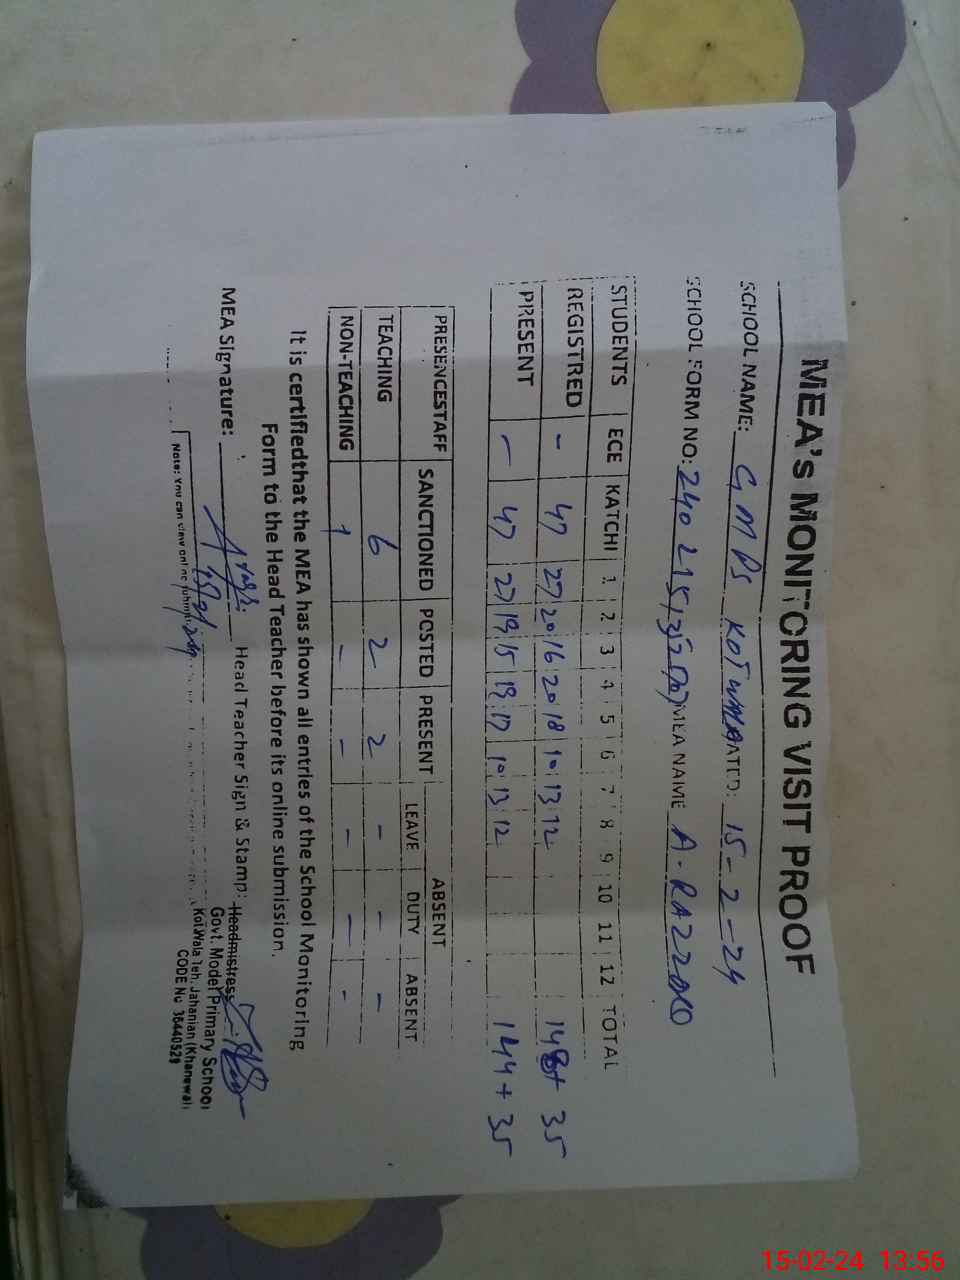 MEA's MONITORING VISIT PROOF
SCHOOL NAME: GMPS KOTWALA DATED: 15-2-24
SCHOOL FORM NO: MEA NAME A-RAZZAQ
STUDENTS ECE KATCHI 1 2 3 4 5 6 7 8 9 10 11 12 TOTAL
REGISTRED - 47 27 20 16 20 18 10 13 12 148+35
PRESENT - 47 27 19 15 19 17 10 13 12 144+35
PRESENCESTAFF SANCTIONED POSTED PRESENT ABSENT
LEAVE DUTY ABSENT
TEACHING 6 2 2 - - -
NON-TEACHING 1 - - - - -
It is certifiedthat the MEA has shown all entries of the School Monitoring
Form to the Head Teacher before its online submission.
MEA Signature: Head Teacher Sign & Stamp: Headmistress
Govt. Model Primary School
Kot Wala Teh. Jahanian (Khanewal)
CODE No 36440529
Note: You can view online
15-02-24 13:56